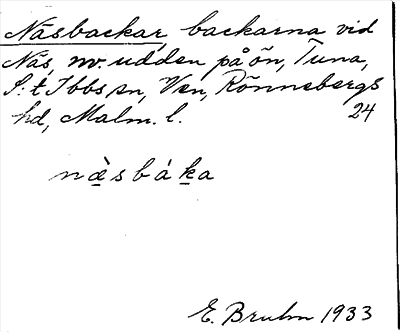 Näsbackar, backarna vid
Näs, nv. udden på ön, Tuna,
S:t Ibbs sn, Ven, Rönnebergs
hd, Malm. l. 24
næ̀sbáka
E. Bruhn 1933